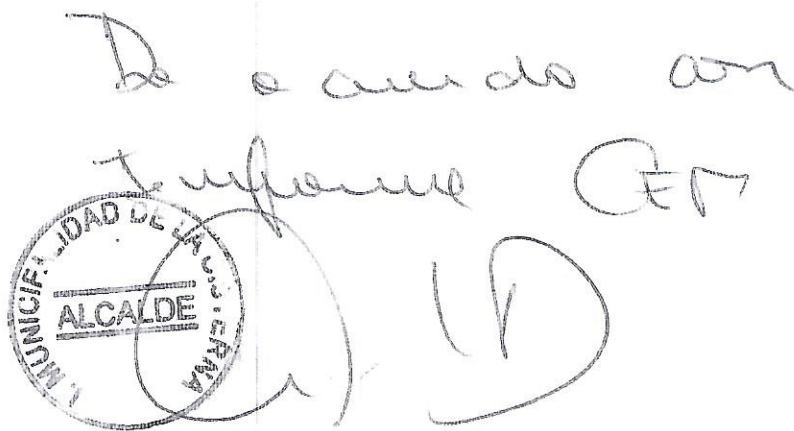 De acuerdo con
Informe CEM
I. MUNICIPALIDAD DE LA CISTERNA
ALCALDE